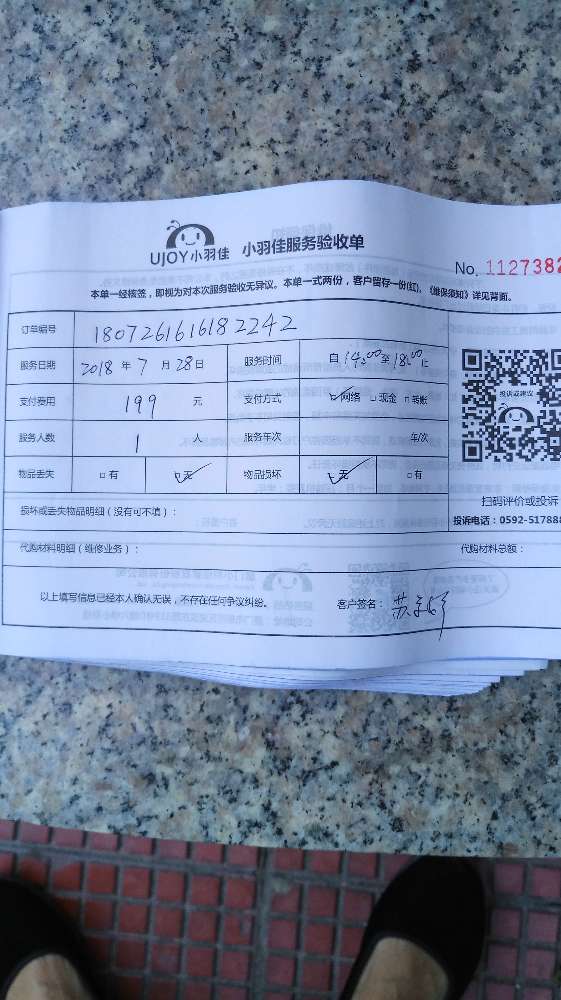 UJOY小羽佳 小羽佳服务验收单
No. 1127382
本单一经核签，即视为对本次服务验收无异议。本单一式两份，客户留存一份(红)。《维保须知》详见背面。
订单编号 1807261616182242
服务日期 2018 年 7 月 28 日 服务时间 自 14:00 至 18:00 止
支付费用 199 元 支付方式 ☑网络 □现金 □转账
服务人数 1 人 服务车次 车/次
物品丢失 □有 ☑无 物品损坏 ☑无 □有
投诉或建议
扫码评价或投诉
投诉电话：0592-517888
损坏或丢失物品明细（没有可不填）：
代购材料明细（维修业务）： 代购材料总额：
以上填写信息已经本人确认无误，不存在任何争议纠纷。 客户签名： 苏